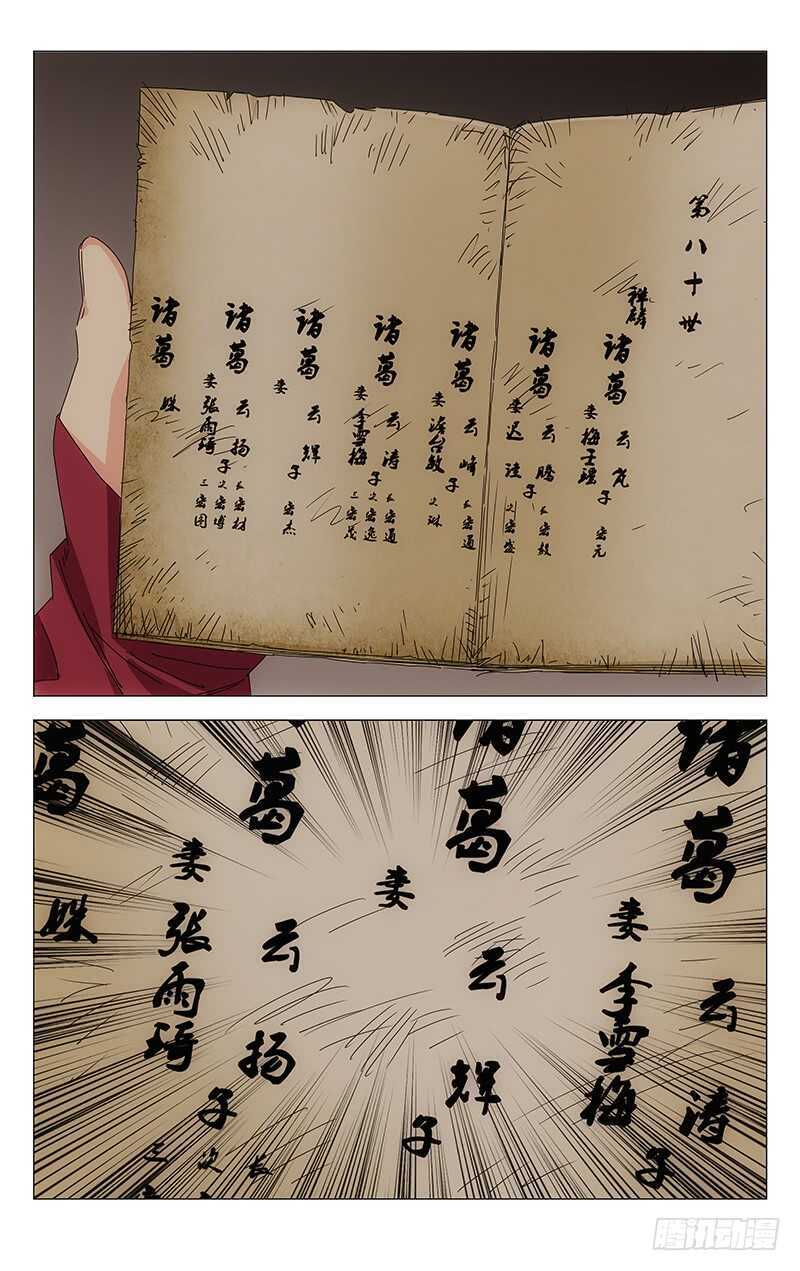 第八十世
祥麟
诸葛云岚
妻
子
宏元
诸葛云腾
妻迟
子
长宏毅
次宏盛
诸葛云峰
妻澹台敏
子
长宏通
次琳
诸葛云涛
妻李雪梅
子
长宏通
次宏逸
三宏茂
诸葛云辉
妻
子
宏杰
诸葛云扬
妻张雨琦
子
长宏材
次宏博
三宏图
诸葛
姝
诸葛
云涛
妻李雪梅
子
葛
云辉
妻
子
葛
云扬
妻张雨琦
子
长
次
三
葛
姝
腾讯动漫